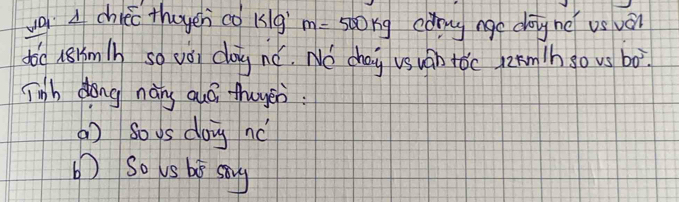 VD1: 1 chiếc thuyền có klg' m = 500kg cđộng ngc dòng nc' vs vận
tốc 18km/h so với dòng nc'. Nc' chảy vs vận tốc 12km/h so vs bờ.
Tính động năng của thuyền:
a) So vs dòng nc'
b) So vs bờ sông